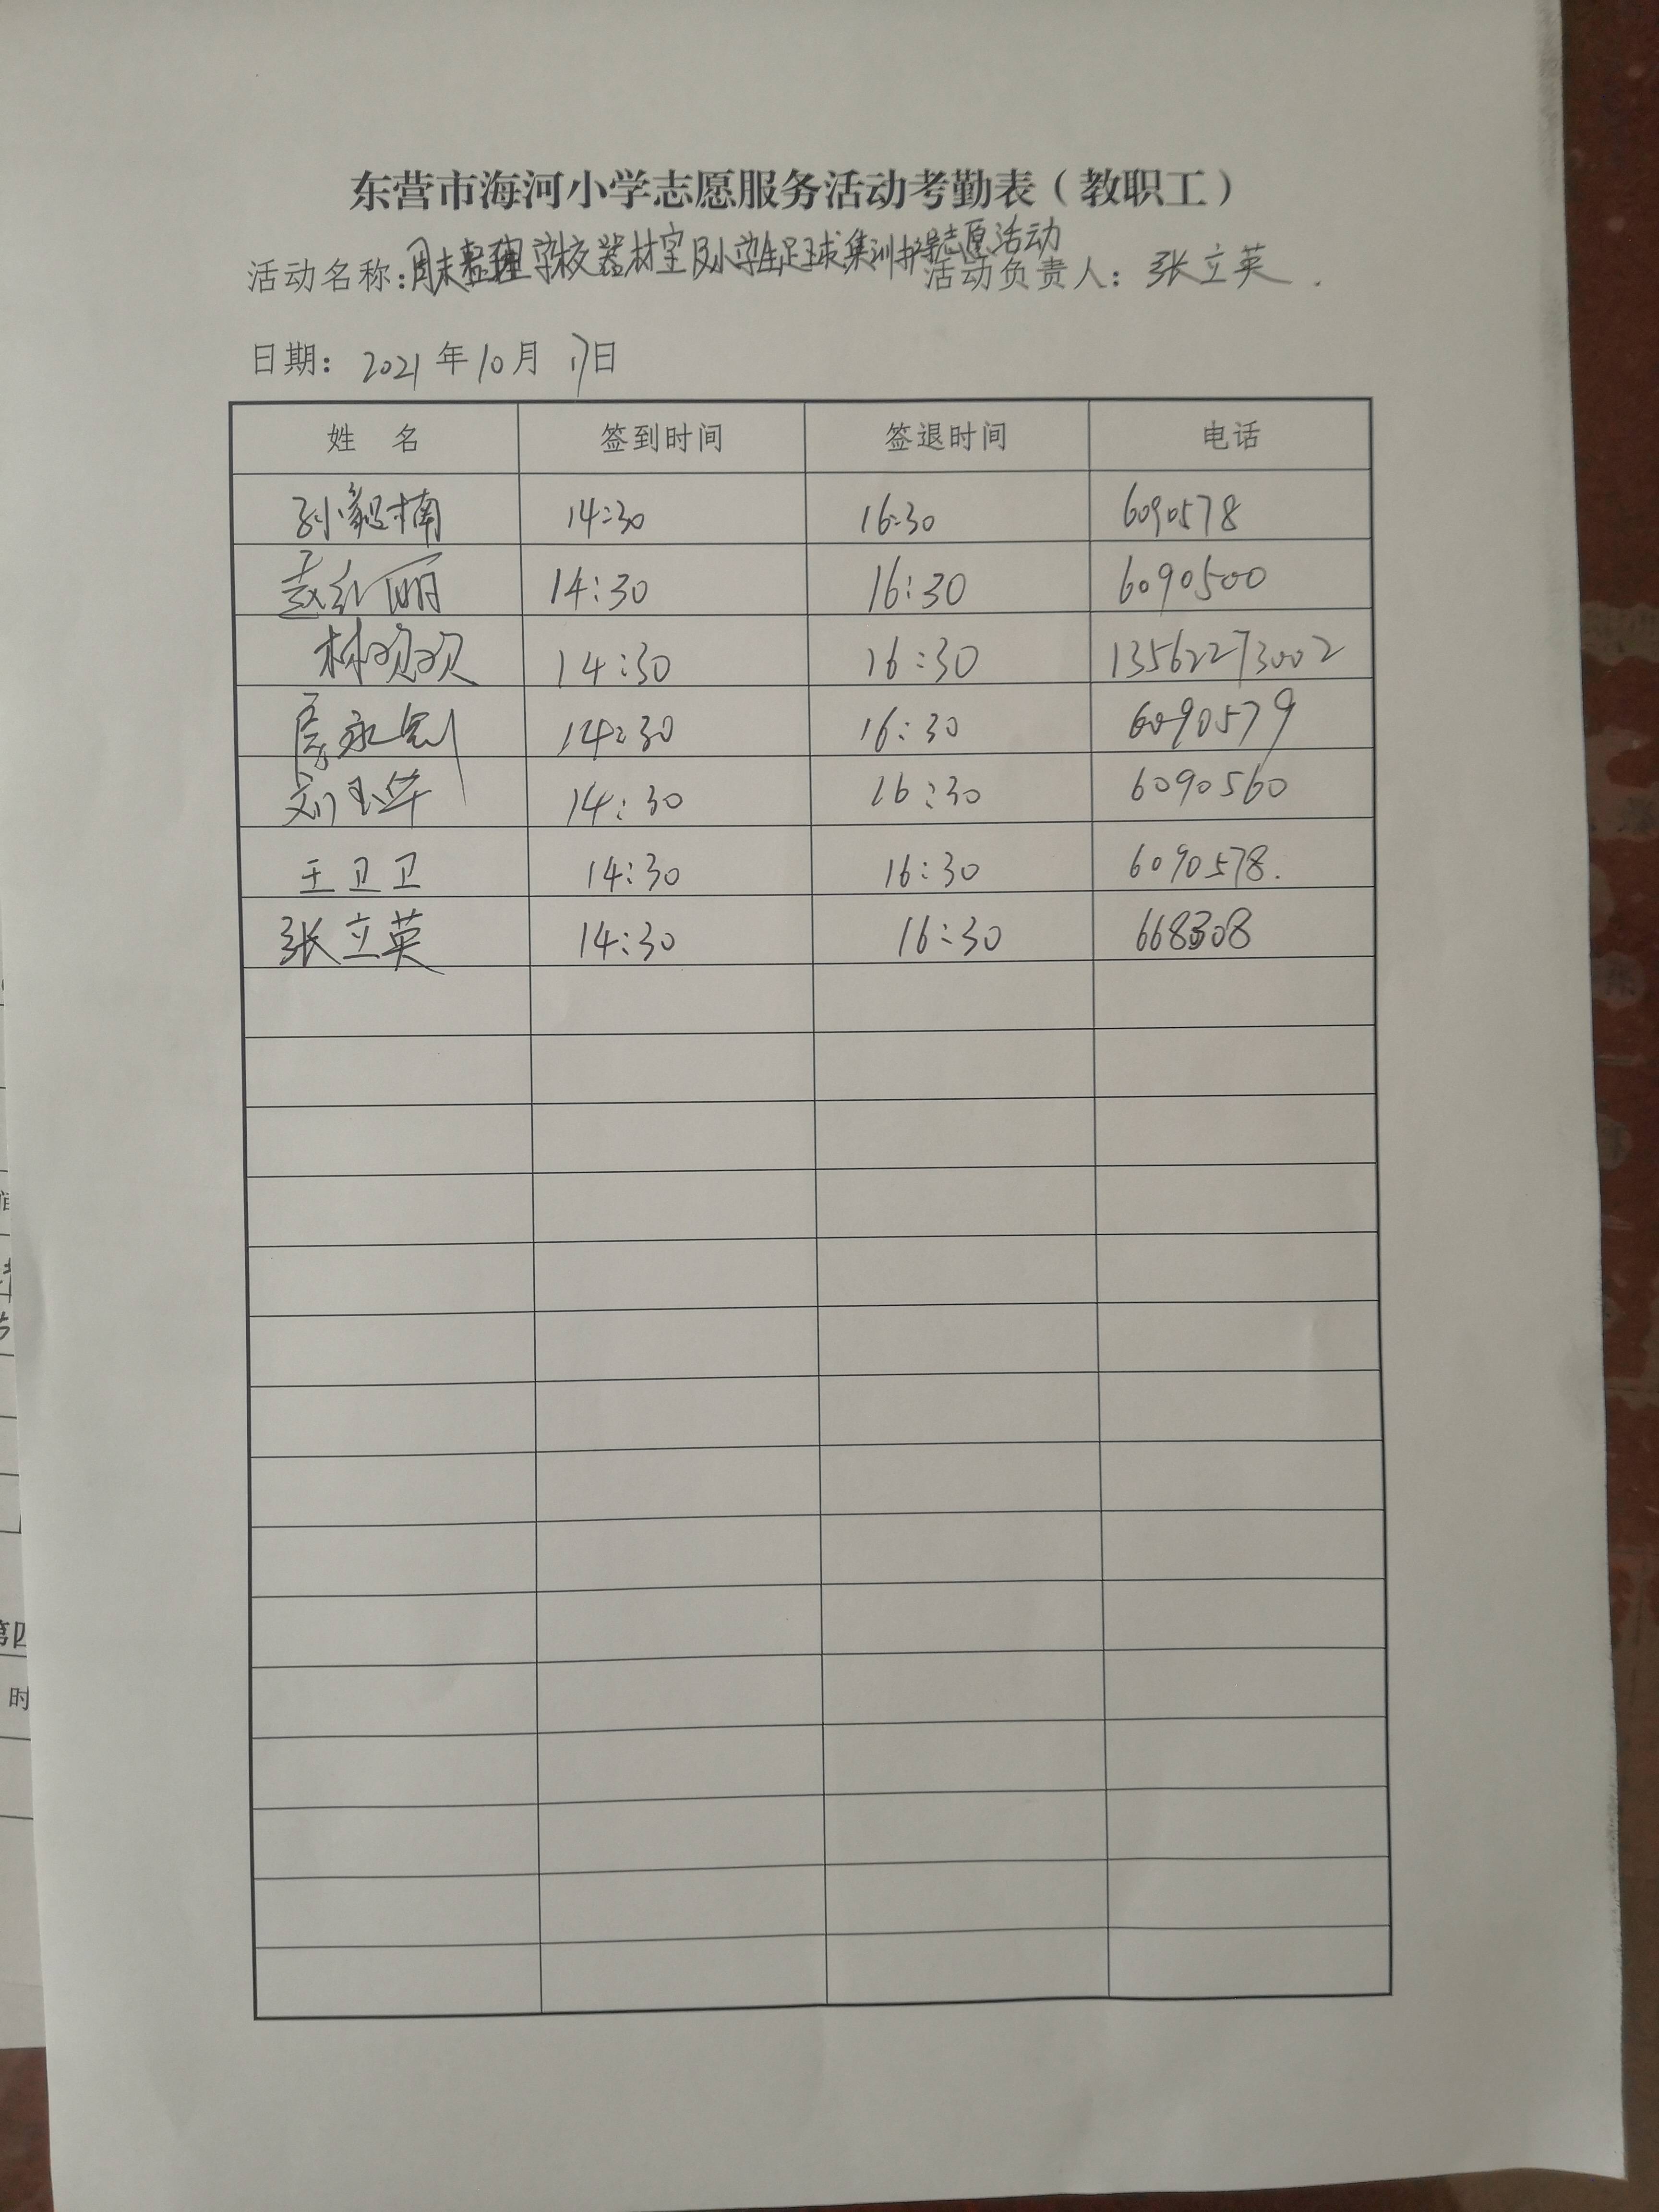 东营市海河小学志愿服务活动考勤表（教职工）
活动名称：周末整理学校器材室及小学生足球集训指导志愿活动 活动负责人：张立英
日期：2021年10月17日
姓 名 签到时间 签退时间 电话
孙毅楠 14:30 16:30 6090578
赵红丽 14:30 16:30 6090500
林欢欢 14:30 16:30 13562273002
永钊 14:30 16:30 6090579
刘玉华 14:30 16:30 6090560
王卫卫 14:30 16:30 6090578.
张立英 14:30 16:30 668308
第四
时